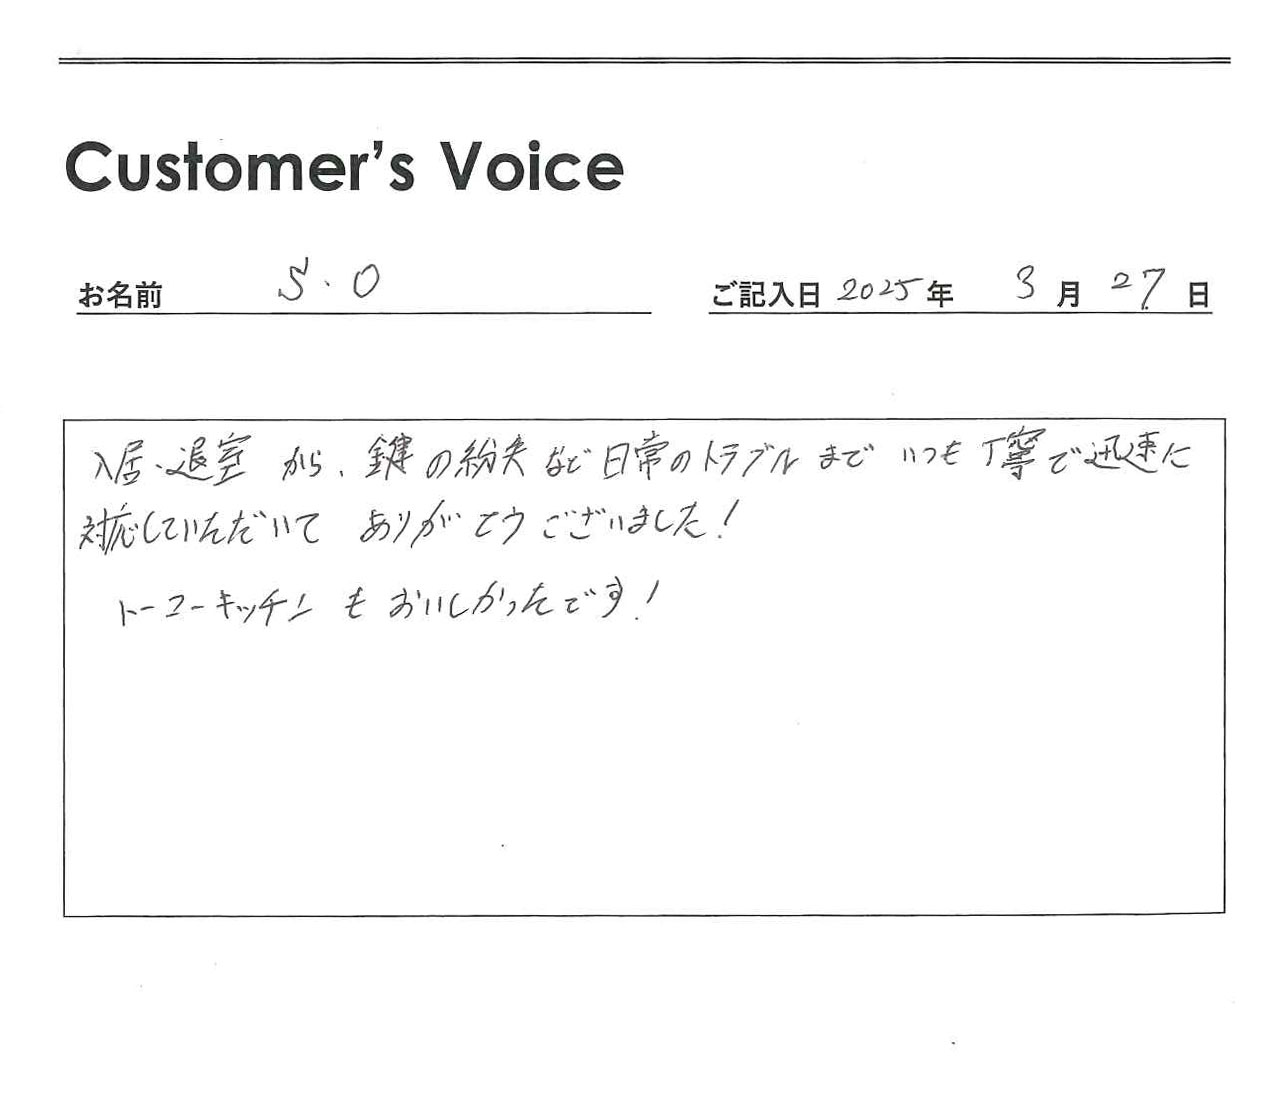 Customer's Voice
お名前 S.O ご記入日 2025年 3月 27日
入居・退室から、鍵の紛失など日常のトラブルまでいつも丁寧で迅速に
対応していただいて ありがとうございました!
トーコーキッチンもおいしかったです!